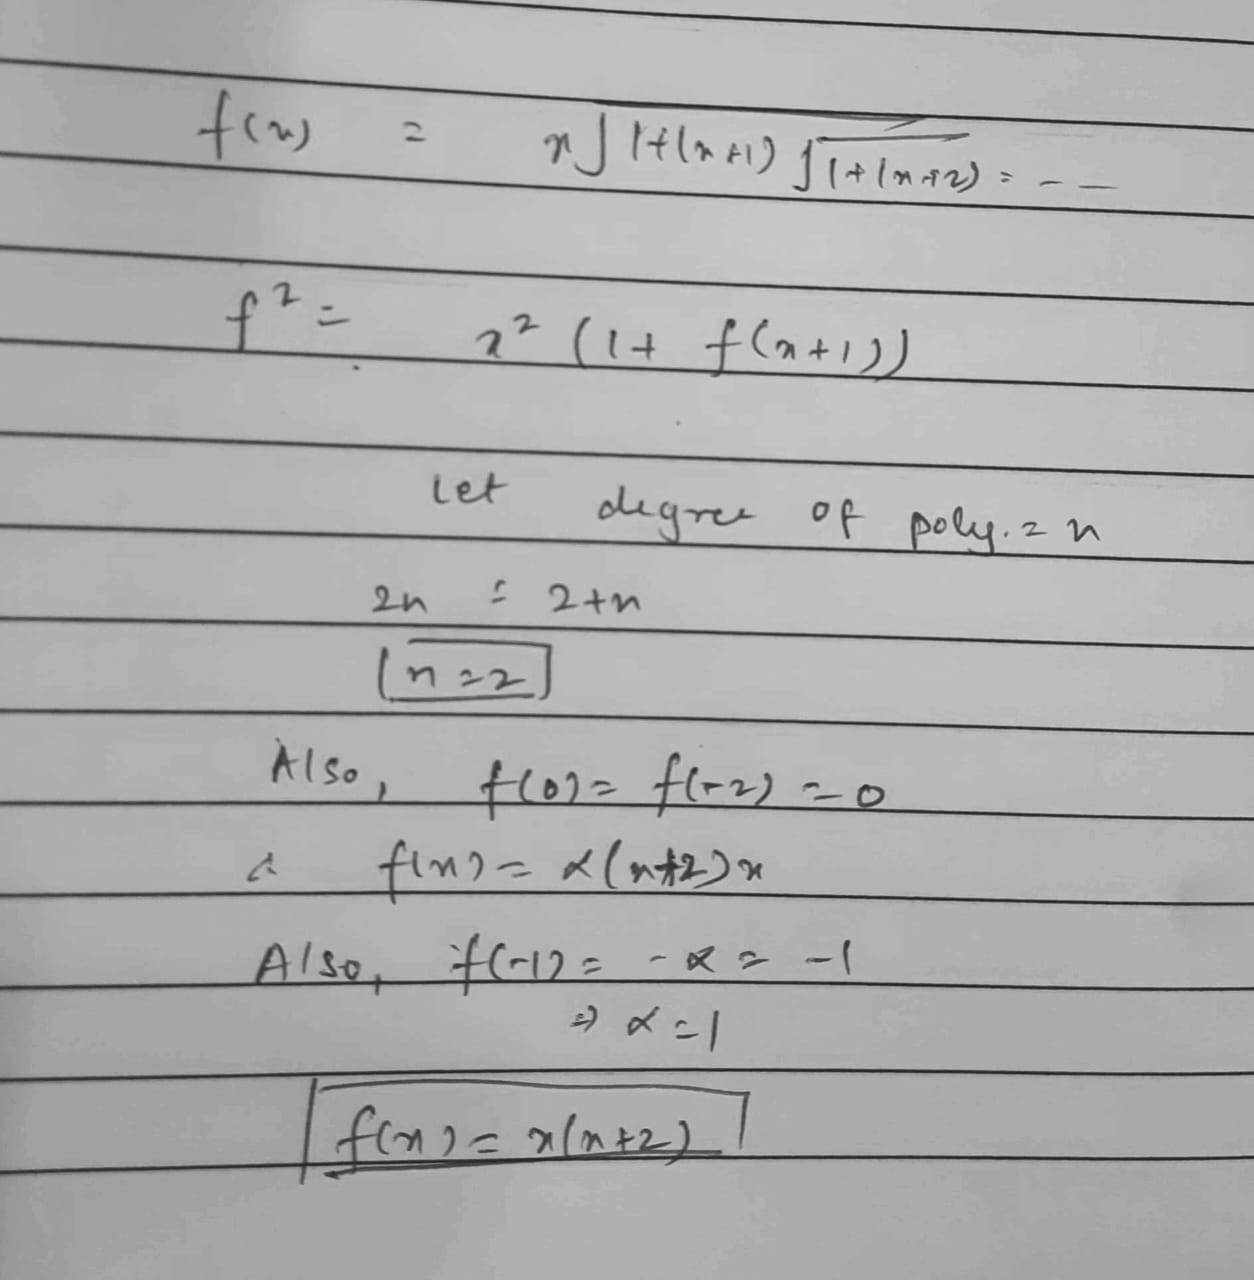 f(x) = x√1+(x+1)√1+(x+2) = - -
f² = x² (1+ f(x+1))
Let degree of poly. = n
2n = 2+n
n=2
Also, f(0) = f(-2) = 0
f(x) = α(x+2)x
Also, f(-1) = -α = -1
⇒ α = 1
f(x) = x(x+2)